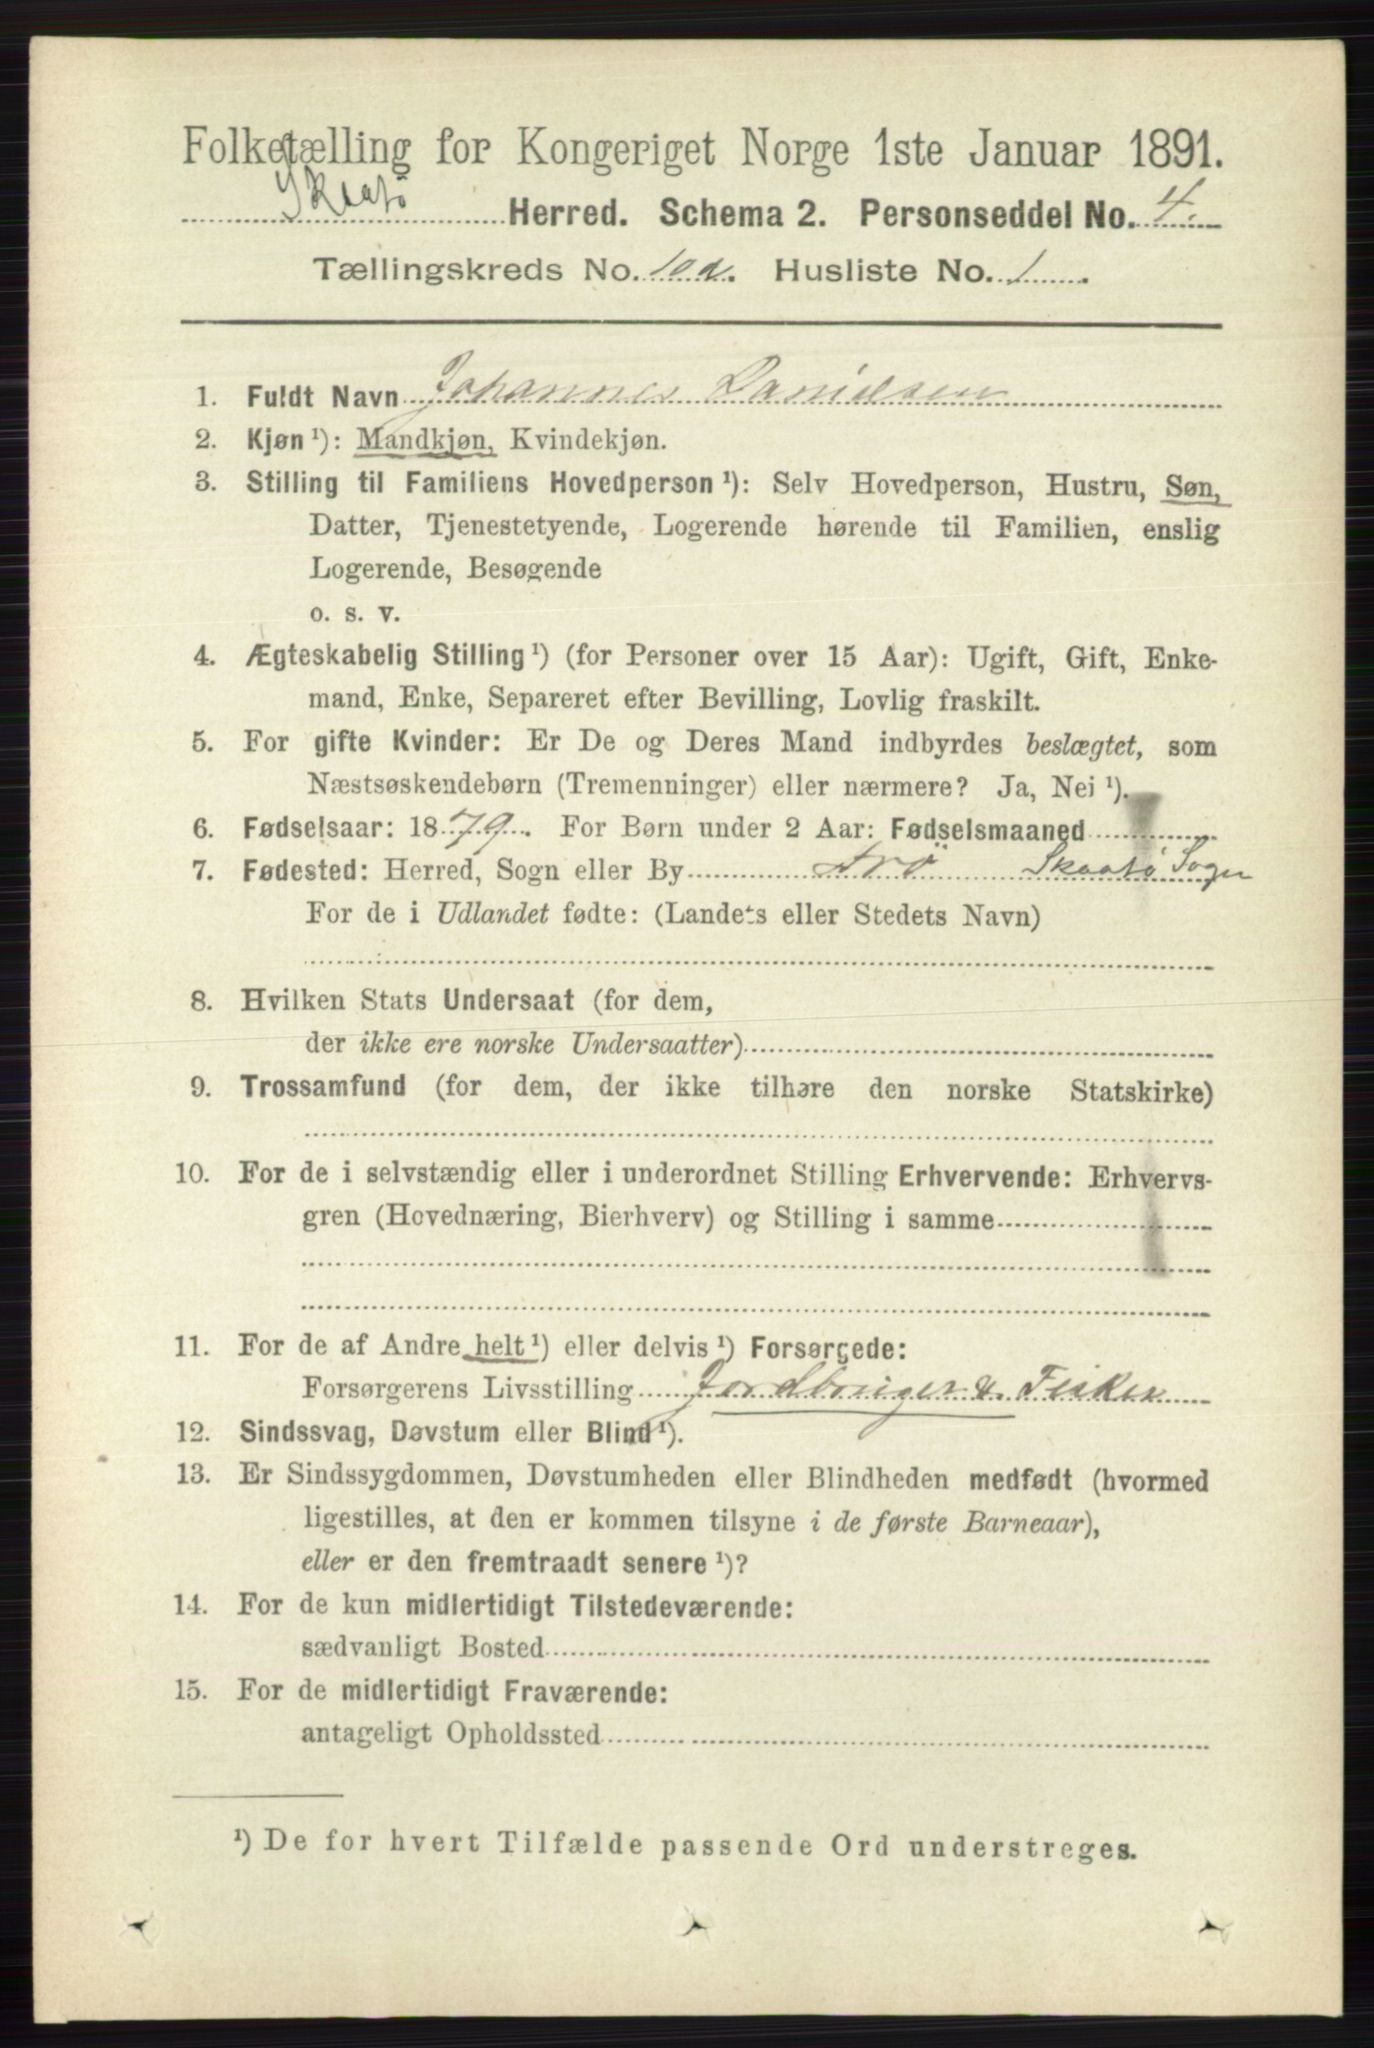 Folketælling for Kongeriget Norge 1ste Januar 1891.
Skaatø Herred. Schema 2. Personseddel No. 4.
Tællingskreds No. 10a. Husliste No. 1
1. Fuldt Navn Johannes Danielsen
2. Kjøn ¹): Mandkjøn, Kvindekjøn.
3. Stilling til Familiens Hovedperson ¹): Selv Hovedperson, Hustru, Søn,
Datter, Tjenestetyende, Logerende hørende til Familien, enslig
Logerende, Besøgende
o. s. v.
4. Ægteskabelig Stilling ¹) (for Personer over 15 Aar): Ugift, Gift, Enke-
mand, Enke, Separeret efter Bevilling, Lovlig fraskilt.
5. For gifte Kvinder: Er De og Deres Mand indbyrdes beslægtet, som
Næstsøskendebørn (Tremenninger) eller nærmere? Ja, Nei ¹).
6. Fødselsaar: 1879. For Børn under 2 Aar: Fødselsmaaned
7. Fødested: Herred, Sogn eller By Arö Skaatö Sogn
For de i Udlandet fødte: (Landets eller Stedets Navn)
8. Hvilken Stats Undersaat (for dem,
der ikke ere norske Undersaatter)
9. Trossamfund (for dem, der ikke tilhøre den norske Statskirke)
10. For de i selvstændig eller i underordnet Stilling Erhvervende: Erhvervs-
gren (Hovednæring, Bierhverv) og Stilling i samme
11. For de af Andre helt ¹) eller delvis ¹) Forsørgede:
Forsørgerens Livsstilling Jordbruger & Fisker
12. Sindssvag, Døvstum eller Blind ¹).
13. Er Sindssygdommen, Døvstumheden eller Blindheden medfødt (hvormed
ligestilles, at den er kommen tilsyne i de første Barneaar),
eller er den fremtraadt senere ¹)?
14. For de kun midlertidigt Tilstedeværende:
sædvanligt Bosted
15. For de midlertidigt Fraværende:
antageligt Opholdssted
¹) De for hvert Tilfælde passende Ord understreges.